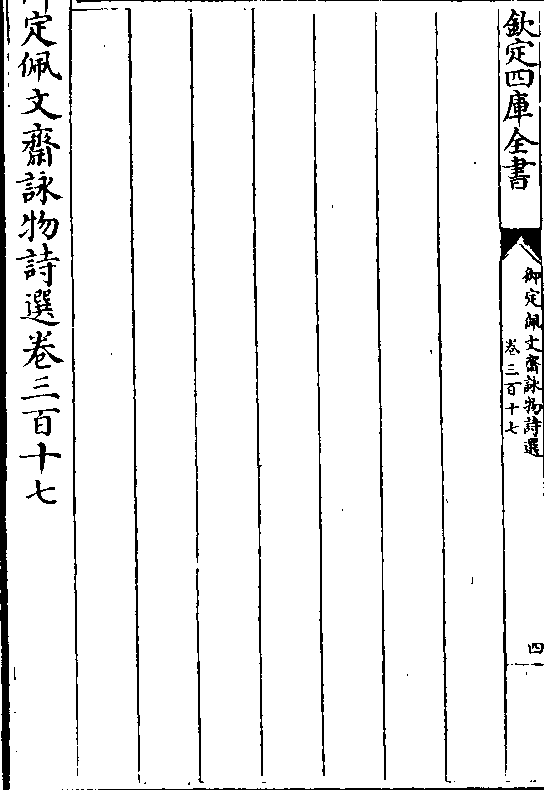 欽定四庫全書
御定佩文齋詠物詩選
卷三百十七
四
御定佩文齋詠物詩選卷三百十七